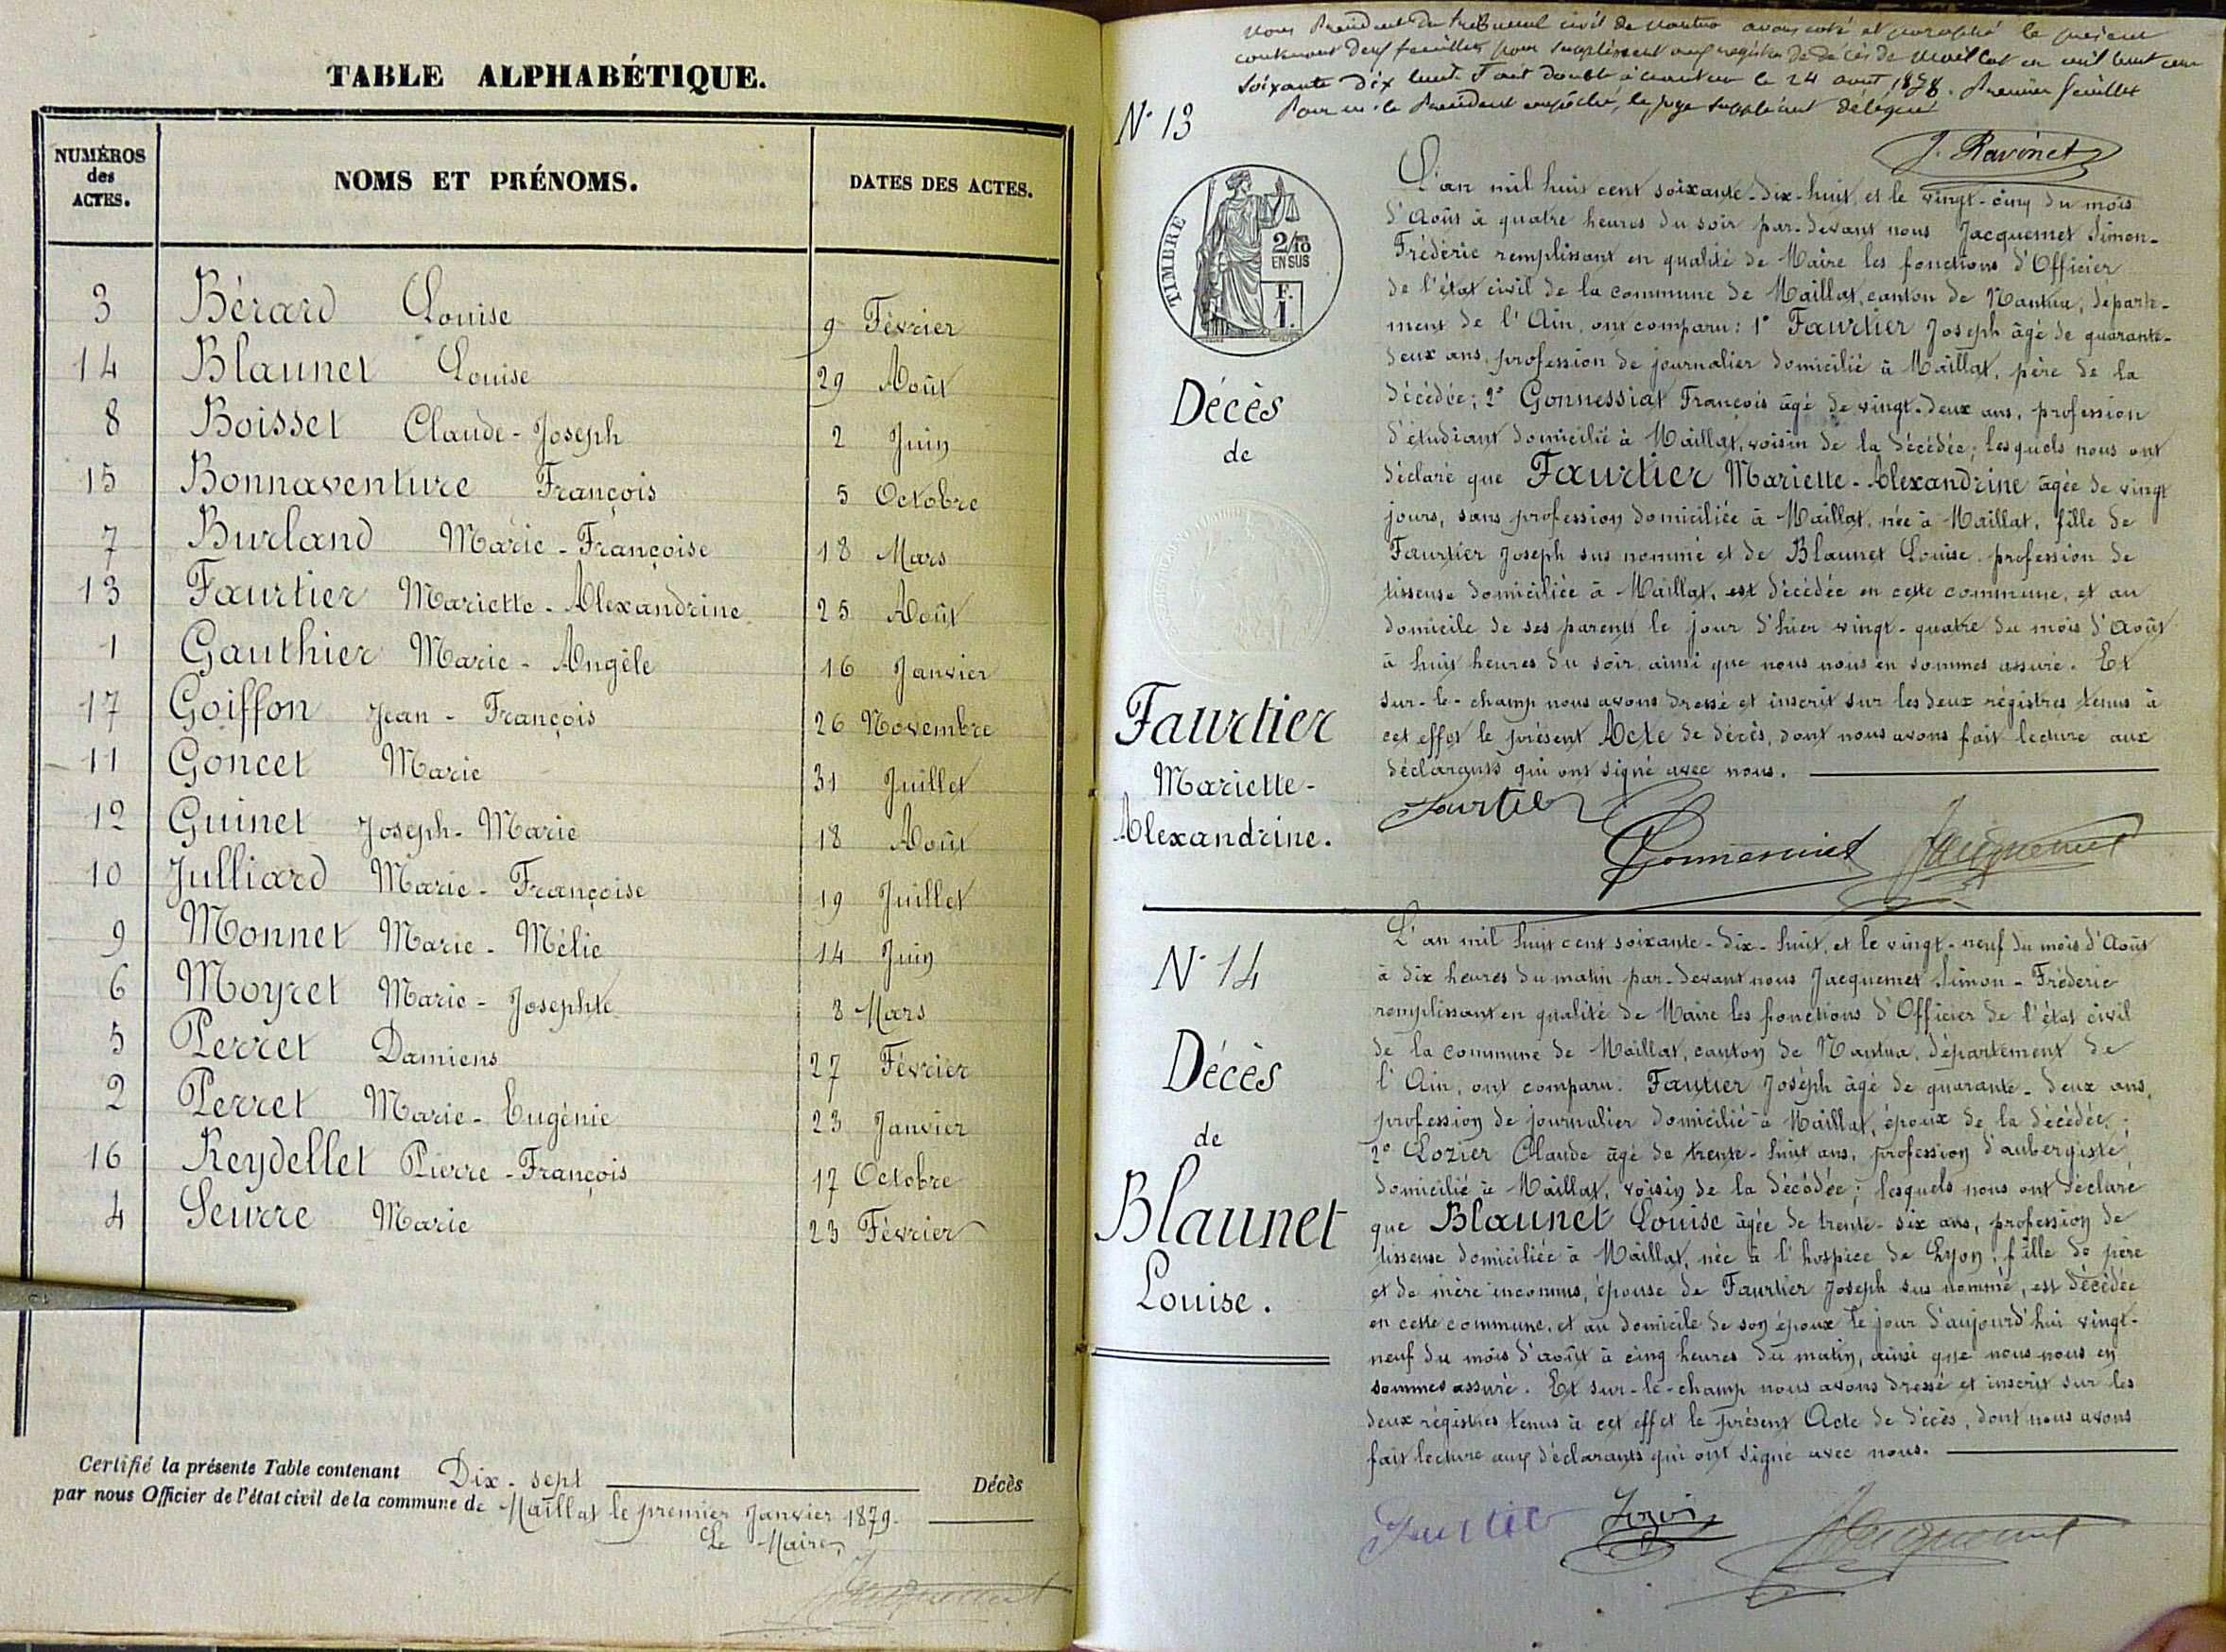 TABLE ALPHABÉTIQUE.
NUMÉROS des ACTES. NOMS ET PRÉNOMS. DATES DES ACTES.
3 Bérard Louise 9 Février
14 Blaunet Louise 29 Août
8 Boisset Claude-Joseph 2 Juin
15 Bonnaventure François 5 Octobre
7 Burland Marie-Françoise 18 Mars
13 Faurtier Mariette-Alexandrine 25 Août
1 Gauthier Marie-Angèle 16 Janvier
17 Goiffon Jean-François 26 Novembre
11 Goncet Marie 31 Juillet
12 Guinet Joseph-Marie 18 Août
10 Julliard Marie-Françoise 19 Juillet
9 Monnet Marie-Mélie 14 Juin
6 Moyret Marie-Josephte 8 Mars
5 Perret Damiens 27 Février
2 Perret Marie-Eugénie 23 Janvier
16 Reydellet Pierre-François 17 Octobre
4 Seurre Marie 23 Février
Certifié la présente Table contenant Dix-sept Décès
par nous Officier de l'état civil de la commune de Maillat le premier Janvier 1879.
Le Maire,
Jacquemet
Nous Président du tribunal civil de Nantua avons coté et paraphé le présent
contenant deux feuillets pour supplément aux registres de décès de Maillat en mil huit cent
soixante dix huit. Fait double à Nantua le 24 août 1878. Premier feuillet
Pour m. le Président empêché, le juge suppléant délégué
J. Ravinet
N° 13
TIMBRE
2/10
EN SUS
F.
1.
Décès
de
Faurtier
Mariette-
Alexandrine.
L'an mil huit cent soixante-dix-huit, et le vingt-cinq du mois
d'Août à quatre heures du soir par-devant nous Jacquemet Simon-
Fréderic remplissant en qualité de Maire les fonctions d'Officier
de l'état civil de la commune de Maillat, canton de Nantua, départe-
ment de l'Ain, ont comparu: 1° Faurtier Joseph âgé de quarante-
deux ans, profession de journalier domicilié à Maillat, père de la
décédée; 2° Gonnessiat François âgé de vingt-deux ans, profession
d'étudiant domicilié à Maillat, voisin de la décédée; lesquels nous ont
déclaré que Faurtier Mariette-Alexandrine âgée de vingt
jours, sans profession domiciliée à Maillat, née à Maillat, fille de
Faurtier Joseph sus nommé et de Blaunet Louise, profession de
tisseuse domiciliée à Maillat, est décédée en cette commune, et au
domicile de ses parents le jour d'hier vingt-quatre du mois d'Août
à huit heures du soir, ainsi que nous nous en sommes assuré. Et
sur-le-champ nous avons dressé et inscrit sur les deux régistres tenus à
cet effet le présent Acte de décès, dont nous avons fait lecture aux
déclarants qui ont signé avec nous.
Faurtier Gonnessiat Jacquemet
N° 14
Décès
de
Blaunet
Louise.
L'an mil huit cent soixante-dix-huit, et le vingt-neuf du mois d'Août
à dix heures du matin par-devant nous Jacquemet Simon-Fréderic
remplissant en qualité de Maire les fonctions d'Officier de l'état civil
de la commune de Maillat, canton de Nantua, département de
l'Ain, ont comparu: Faurtier Joséph âgé de quarante-deux ans,
profession de journalier domicilié à Maillat, époux de la décédée;
2° Lozier Claude âgé de trente-huit ans, profession d'aubergiste,
domicilié à Maillat, voisin de la décédée; lesquels nous ont déclaré
que Blaunet Louise âgée de trente-six ans, profession de
tisseuse domiciliée à Maillat, née à l'hospice de Lyon, fille de père
et de mère inconnus, épouse de Faurtier Joseph sus nommé, est décédée
en cette commune, et au domicile de son époux le jour d'aujourd'hui vingt-
neuf du mois d'août à cinq heures du matin, ainsi que nous nous en
sommes assuré. Et sur-le-champ nous avons dressé et inscrit sur les
deux régistres tenus à cet effet le présent Acte de décès, dont nous avons
fait lecture aux déclarants qui ont signé avec nous.
Faurtier Lozier Jacquemet